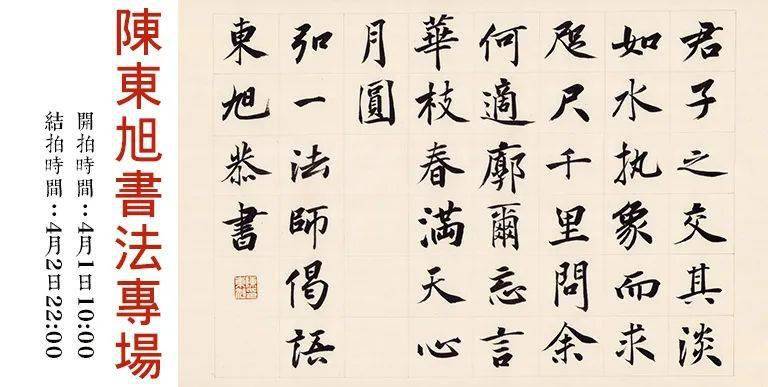 陳東旭書法專場
開拍時間：4月1日10:00
結拍時間：4月2日22:00
君子之交其淡
如水执象而求
咫尺千里問余
何適廓爾忘言
華枝春滿天心
月圓
弘一法師偈語
東旭恭書